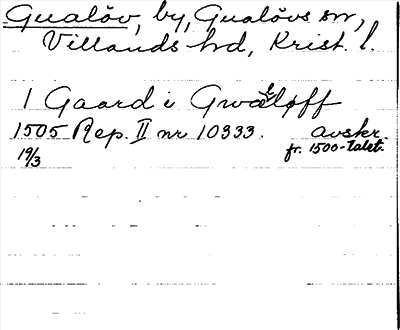 Gualöv, by, Gualövs sn,
Villands hd, Krist. l.
1 Gaard i Gwaløff
1505 Rep. II nr 10333. avskr.
19/3 fr. 1500-talet.